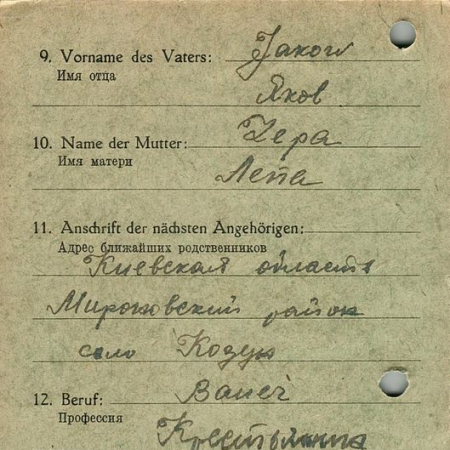 9. Vorname des Vaters: Jakow
Имя отца
Яков
10. Name der Mutter:
Имя матери
11. Anschrift der nächsten Angehörigen:
Адрес ближайших родственников
Киевская область
Мироновский район
село
12. Beruf: Bauer
Профессия